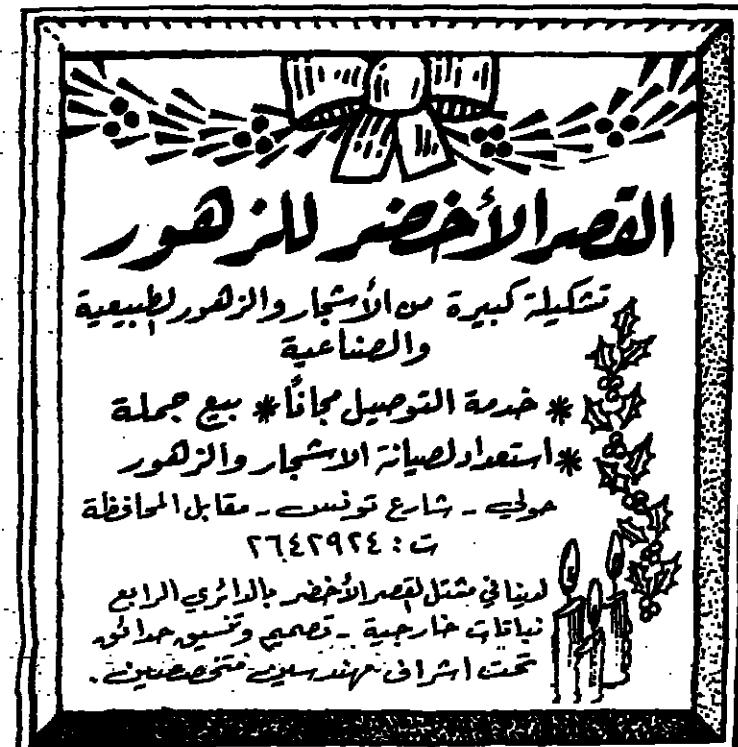 القصر الأخضر للزهور
تشكيلة كبيرة من الأشجار والزهور الطبيعية
والصناعية
* خدمة التوصيل مجاناً * بيع جملة
* استعداد لصيانة الاشجار والزهور
حولي - شارع تونس - مقابل المحافظة
ت : ٢٦٤٢٩٢٤
لدينا في مشتل القصر الأخضر بالدائري الرابع
نباتات خارجية - تصميم وتنسيق حدائق
تحت اشراف مهندسين متخصصين .